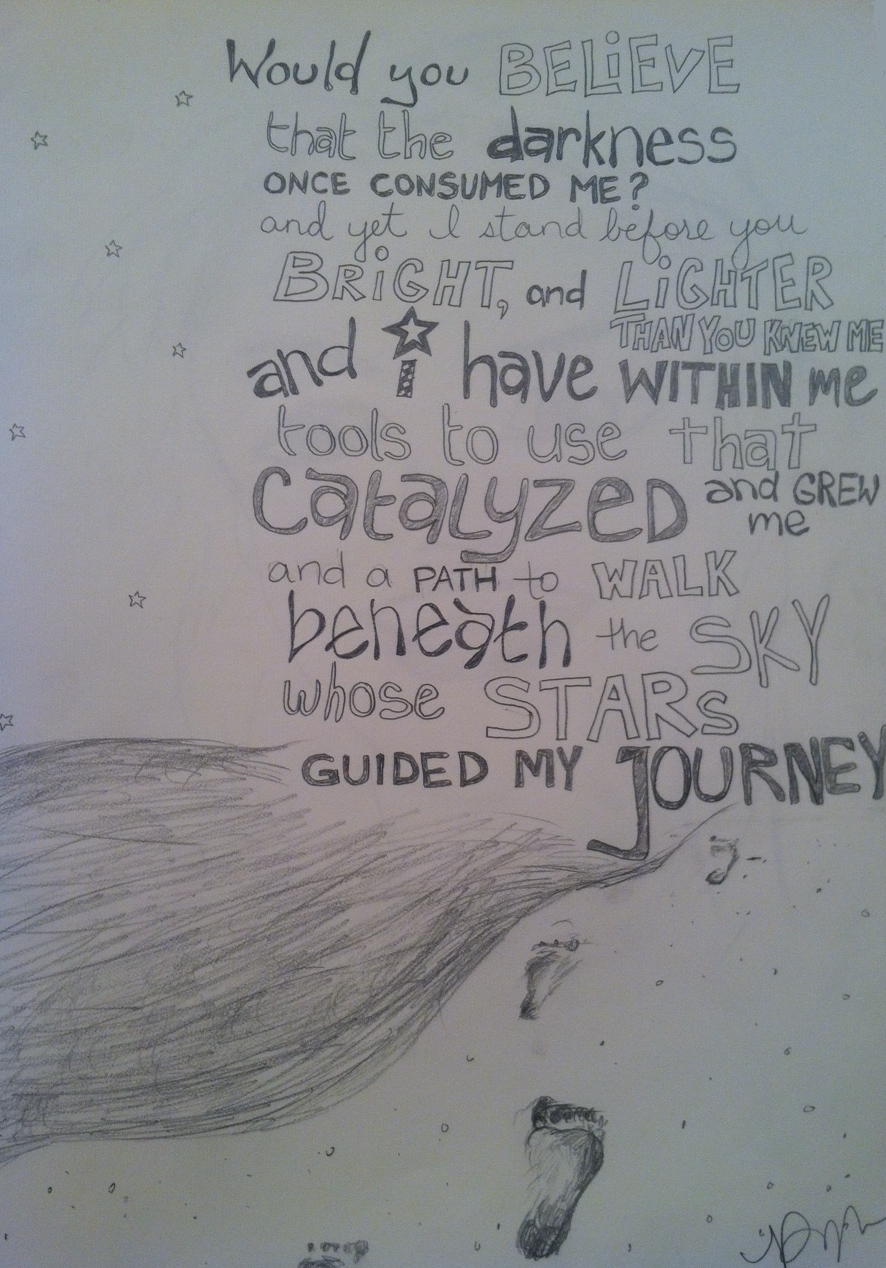 Would you BELiEVE
that the darkness
ONCE CONSUMED ME?
and yet I stand before you
BRiGHT, and LiGHTER
THAN YOU KNEW ME
and i have WITHIN me
tools to use that
Catalyzed and GREW
me
and a PATH to WALK
beneath the SKY
whose STARs
GUIDED MY JOURNEY